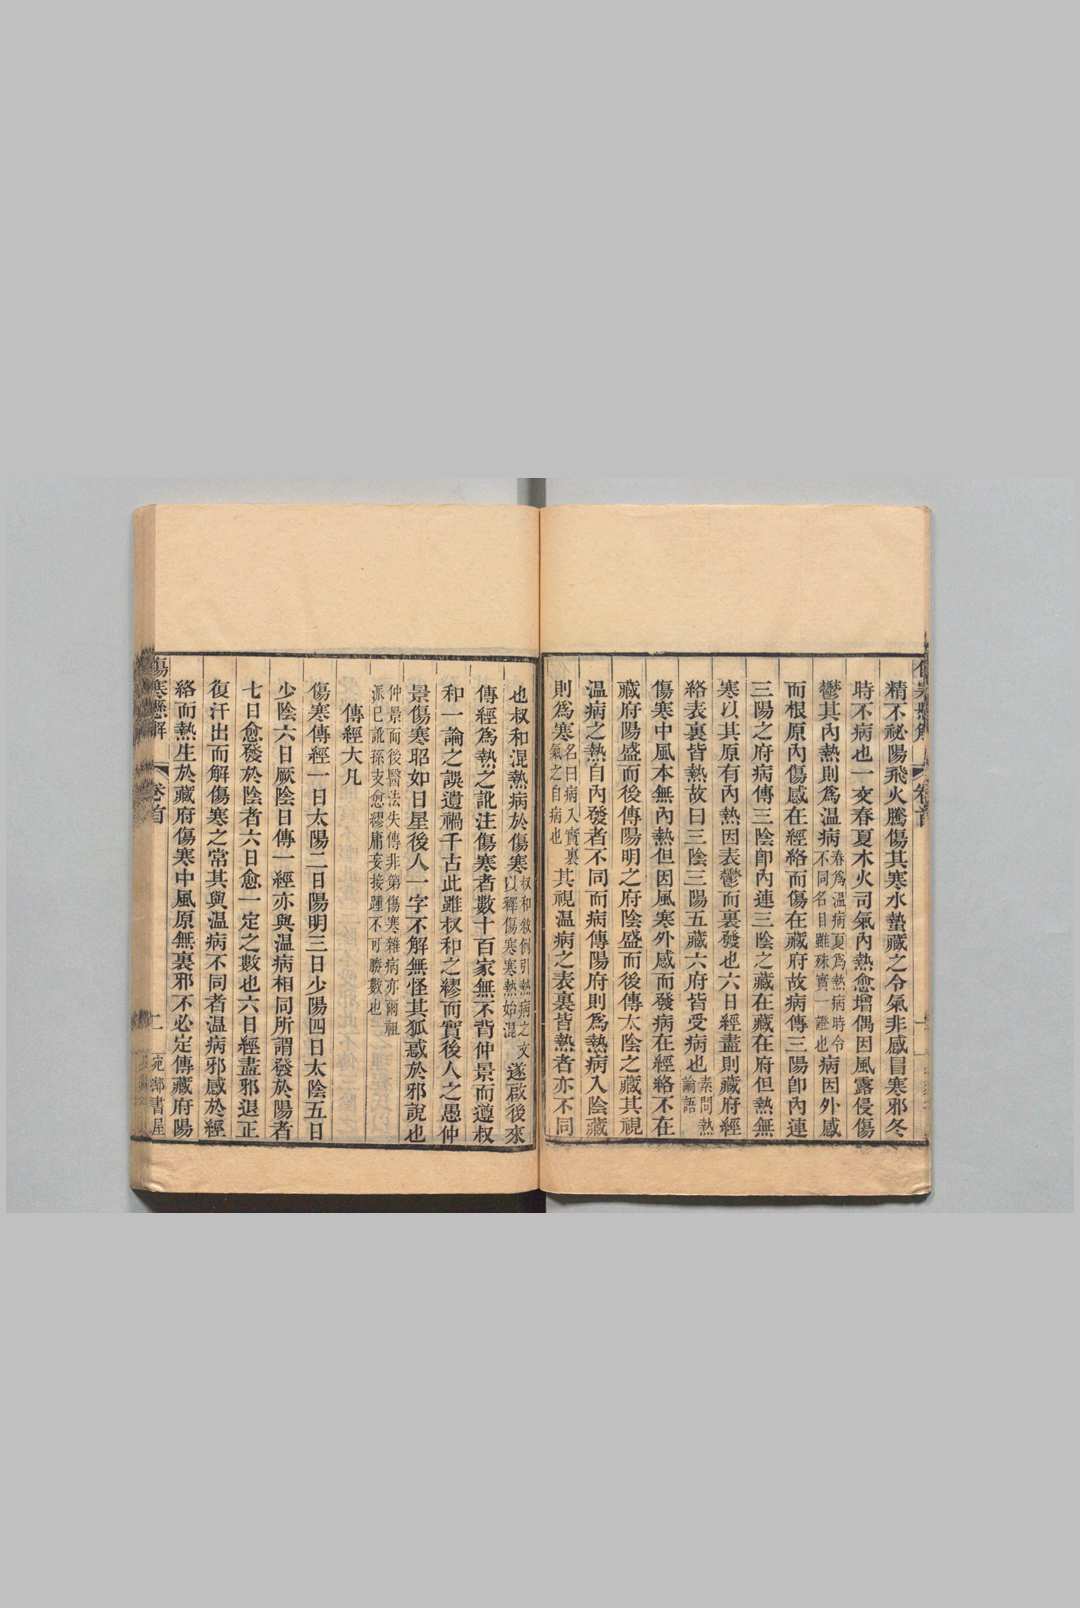 精不祕陽飛火騰傷其寒水蟄藏之令氣非感冒寒邪冬
時不病也一交春夏木火司氣內熱愈增偶因風露侵傷
鬱其內熱則爲溫病春爲溫病夏爲熱病時令不同名目雖殊實一證也病因外感
而根原內傷感在經絡而傷在藏府故病傳三陽卽內連
三陽之府病傳三陰卽內連三陰之藏在藏在府但熱無
寒以其原有內熱因表鬱而裏發也六日經盡則藏府經
絡表裏皆熱故曰三陰三陽五藏六府皆受病也素問熱論語
傷寒中風本無內熱但因風寒外感而發病在經絡不在
藏府陽盛而後傳陽明之府陰盛而後傳太陰之藏其視
溫病之熱自內發者不同而病傳陽府則爲熱病入陰藏
則爲寒名曰病入實裏氣之自病也其視溫病之表裏皆熱者亦不同
也叔和混熱病於傷寒叔和敘例引熱病之文以釋傷寒寒熱始混遂啟後來
傳經爲熱之訛注傷寒者數十百家無不背仲景而遵叔
和一論之誤遺禍千古此雖叔和之繆而實後人之愚仲
景傷寒耶如日星後人一字不解無怪其狐惑於邪說也
仲景而後醫法失傳非第傷寒雜病亦爾祖派已訛孫支愈繆庸妄接踵不可勝數也
傳經大凡
傷寒傳經一日太陽二日陽明三日少陽四日太陰五日
少陰六日厥陰日傳一經亦與溫病相同所謂發於陽者
七日愈發於陰者六日愈一定之數也六日經盡邪退正
復汗出而解傷寒之常其與溫病不同者溫病邪感於經
絡而熱生於藏府傷寒中風原無裏邪不必定傳藏府陽
傷寒懸解 卷首 二 宛鄰書屋